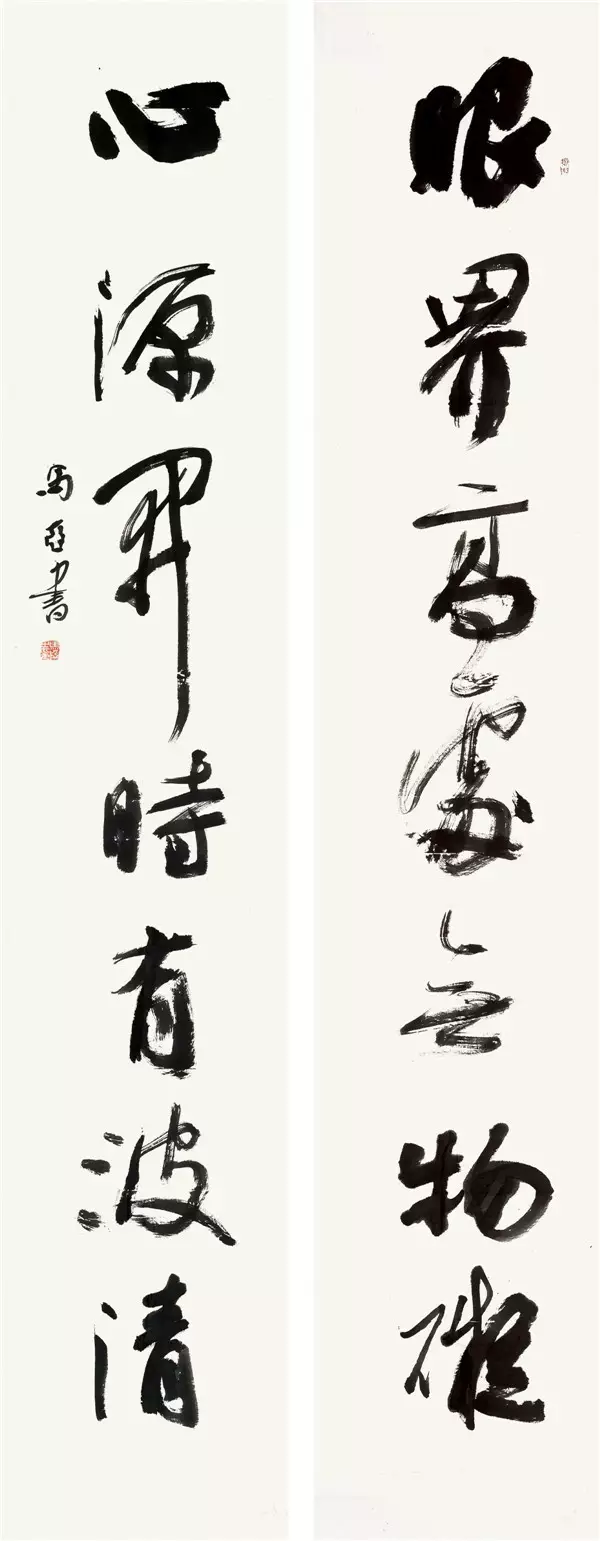 眼界高處無物礙
心源開時有波清
馬亞書